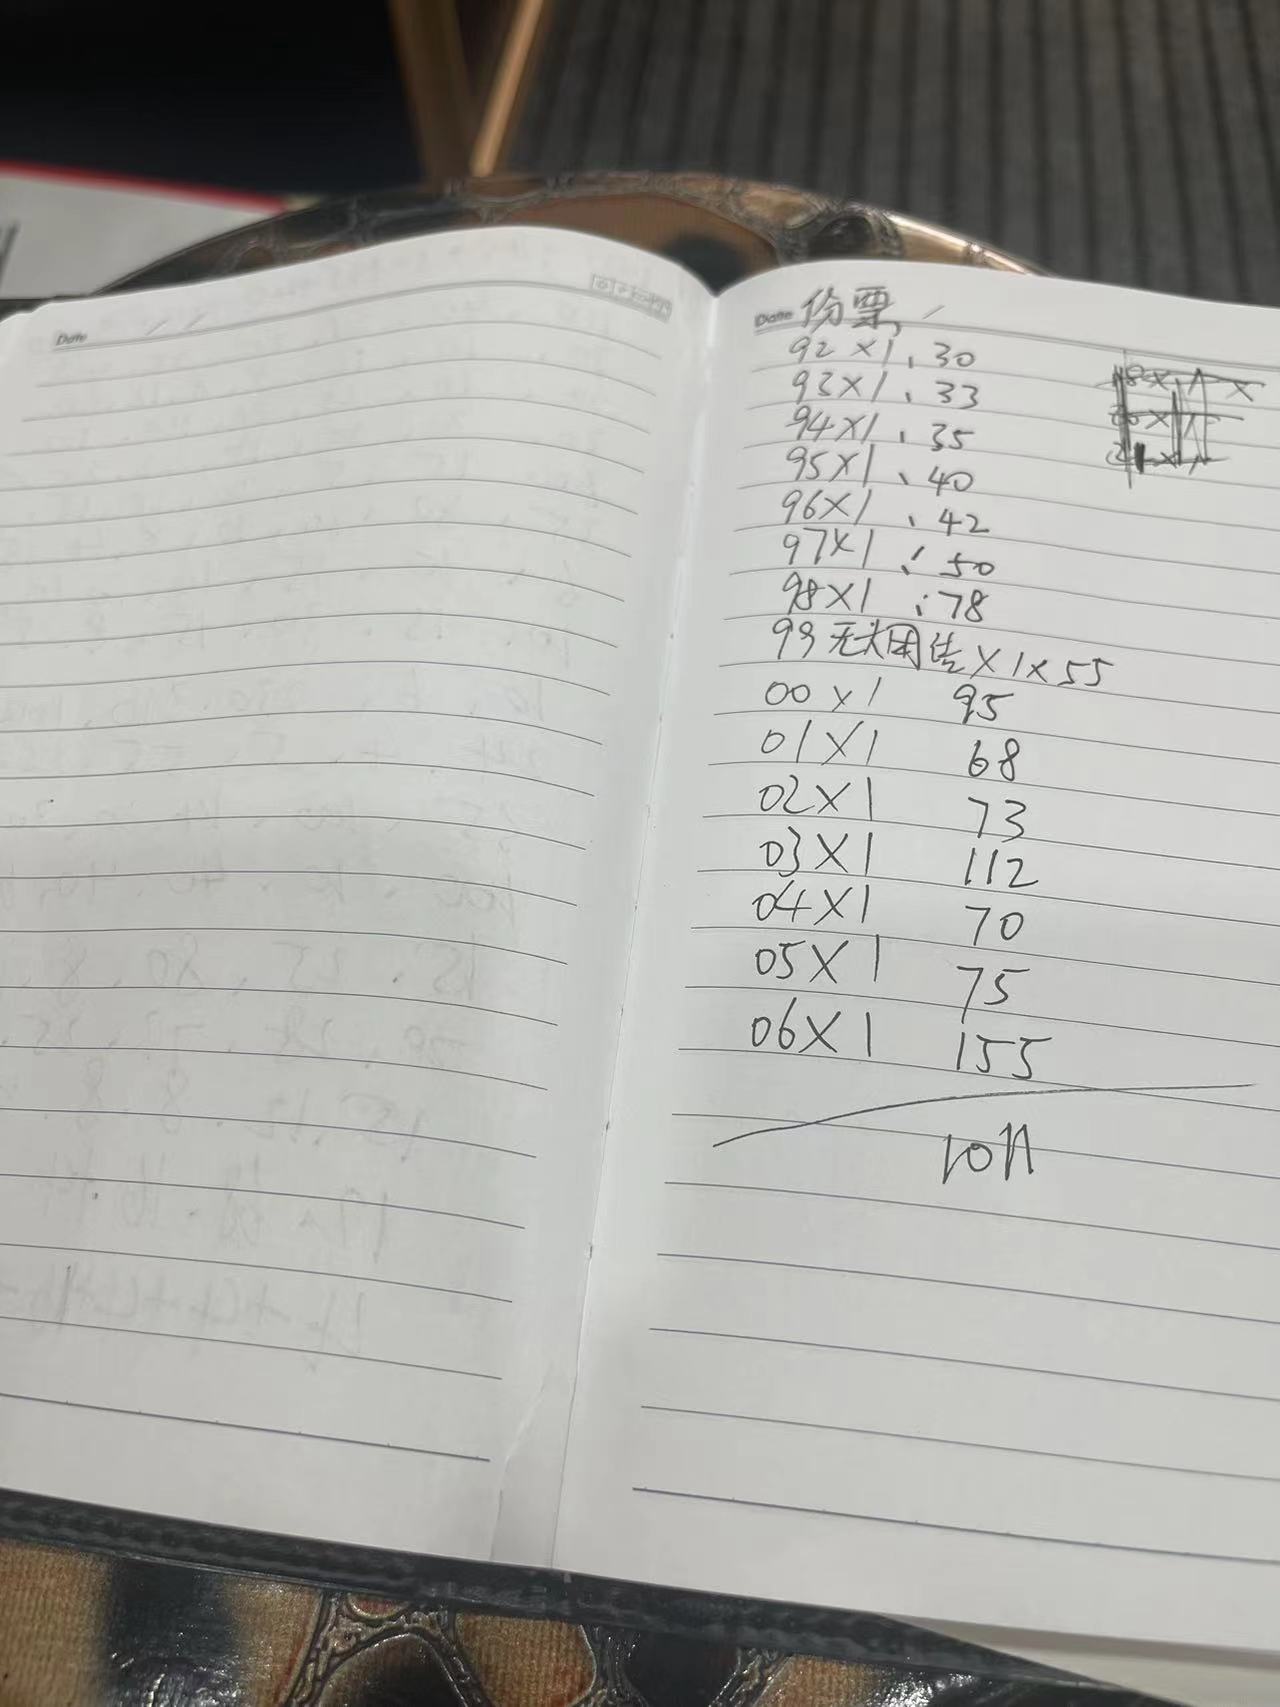 Date
Date 份票
92×1、30
93×1、33
94×1、35
95×1、40
96×1、42
97×1：50
98×1：78
99无大团洁×1×55
00×1 95
01×1 68
02×1 73
03×1 112
04×1 70
05×1 75
06×1 155
1011